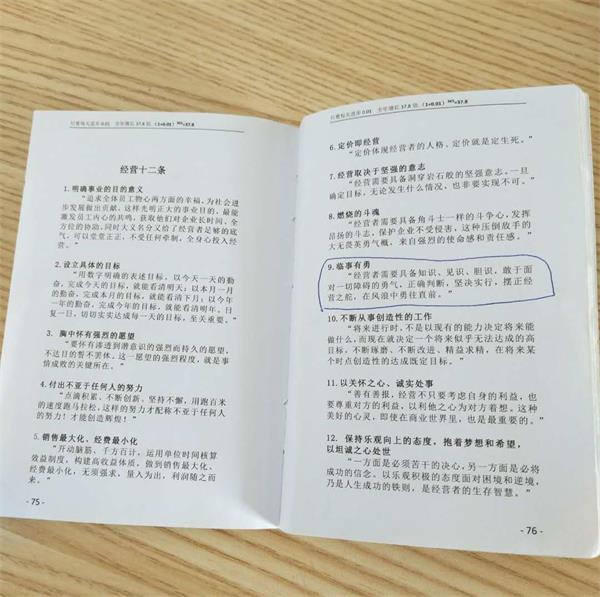 只要每天进步 0.01　全年增长 37.8 倍,（1+0.01）³⁶⁵=37.8
经营十二条
1. 明确事业的目的意义
“追求全体员工物心两方面的幸福，为社会进
步发展做出贡献，这样光明正大的事业目的，最能
激发员工内心的共鸣，获取他们对企业长时间、全
方位的协助。同时大义名分又给了经营者足够的底
气，可以堂堂正正、不受任何牵制，全身心投入经
营。”
2. 设立具体的目标
“用数字明确的表述目标，以今天一天的勤
奋，完成今天的目标，就能看清明天；以本月一月
的勤奋，完成本月的目标，就能看清下月；以今年
一年的勤奋，完成今年的目标，就能看清明年。日
复一日，切切实实达成每一天的目标，至关重要。”
3. 胸中怀有强烈的愿望
“要怀有渗透到潜意识的强烈而持久的愿望，
不达目的誓不罢休。这一愿望的强烈程度，就是事
情成败的关键所在。”
4. 付出不亚于任何人的努力
“点滴积累、不断创新、坚持不懈，用跑百米
的速度跑马拉松，这样的努力才配称不亚于任何人
的努力！才能创造辉煌！”
5. 销售最大化、经费最小化
“开动脑筋、千方百计，运用单位时间核算
效益制度，构建高收益体质，做到销售最大化、
经费最小化，无须强求，量入为出，利润随之而
来。”
- 75 -
只要每天进步 0.01　全年增长 37.8 倍,（1+0.01）³⁶⁵=37.8
6. 定价即经营
“定价体现经营者的人格、定价就是定生死。”
7. 经营取决于坚强的意志
“经营需要具备洞穿岩石般的坚强意志。一旦
确定目标，无论发生什么情况，也非要实现不可。”
8. 燃烧的斗魂
“经营需要具备角斗士一样的斗争心，发挥
昂扬的斗志，保护企业不受侵害，这种压倒敌手的
大无畏英勇气概，来自强烈的使命感和责任感。”
9. 临事有勇
“经营者需要具备知识、见识、胆识，敢于面
对一切障碍的勇气，正确判断，坚决实行，摆正经
营之舵，在风浪中勇往直前。”
10. 不断从事创造性的工作
“将来进行时，不是以现有的能力决定将来能
做什么，而现在就决定一个将来似乎无法达成的高
目标，不断琢磨、不断改进、精益求精，在将来某
个时点创造性的达成既定目标。”
11. 以关怀之心、诚实处事
“善有善报，经营不只要考虑自身的利益，也
要尊重对方的利益，以利他之心为对方着想。这种
美好的心灵，即使在商业世界里，也是最重要的。”
12. 保持乐观向上的态度，抱着梦想和希望，
以坦诚之心处世
“一方面是必须苦干的决心，另一方面是必将
成功的信念。以乐观积极的态度面对困境和逆境，
乃是人生成功的铁则，是经营者的生存智慧。”
- 76 -